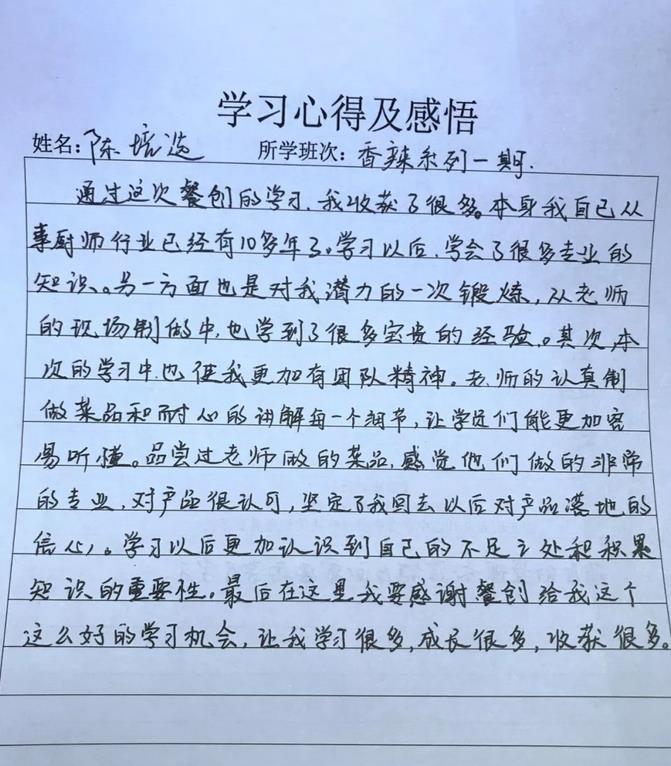 学习心得及感悟
姓名：陈培选 所学班次：香辣系列一期.
通过这次餐创的学习.我收获了很多。本身我自己从
事厨师行业已经有10多年了。学习以后.学会了很多专业的
知识。另一方面也是对我潜力的一次锻炼，从老师
的现场制做中，也学到了很多宝贵的经验。其次，本
次的学习中.也使我更加有团队精神。老师的认真制
做菜品和耐心的讲解每一个细节，让学员们能更加容
易听懂。品尝过老师做的菜品，感觉他们做的非常
的专业，对产品很认可，坚定了我回去以后对产品落地的
信心，。学习以后更加认识到自己的不足之处和积累
知识的重要性。最后在这里.我要感谢餐创给我这个
这么好的学习机会，让我学习很多，成长很多，收获很多。